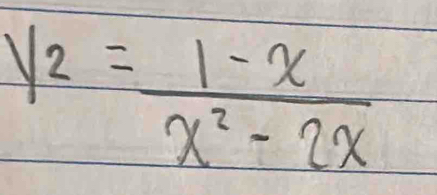 y2 = \frac{1-x}{x^2-2x}